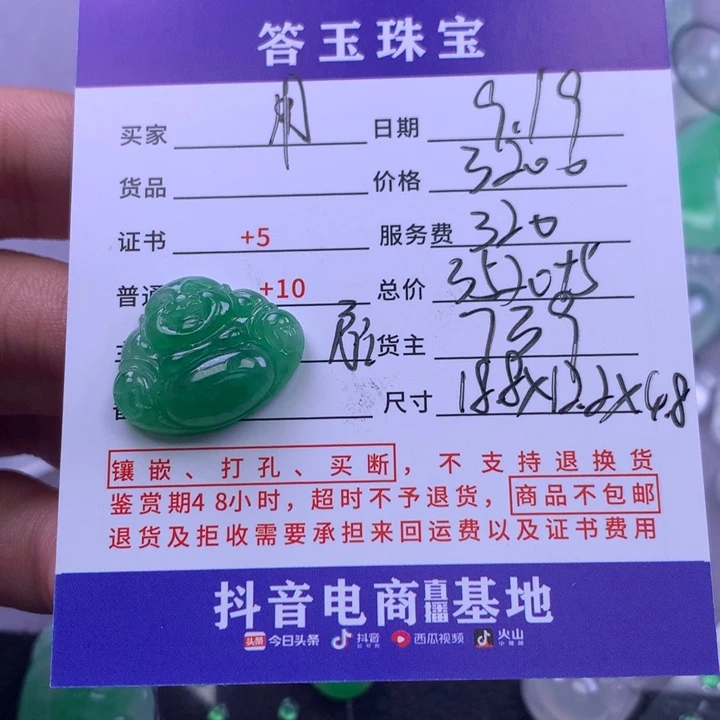 答玉珠宝
买家 日期 9.19
货品 价格 3200
证书 +5 服务费 320
普通 +10 总价 3520+5
货主 739
尺寸 18.8×12.2×4.8
镶嵌、打孔、买断，不支持退换货
鉴赏期48小时，超时不予退货，商品不包邮
退货及拒收需要承担来回运费以及证书费用
抖音电商直播基地
头条 今日头条 抖音 西瓜视频 火山